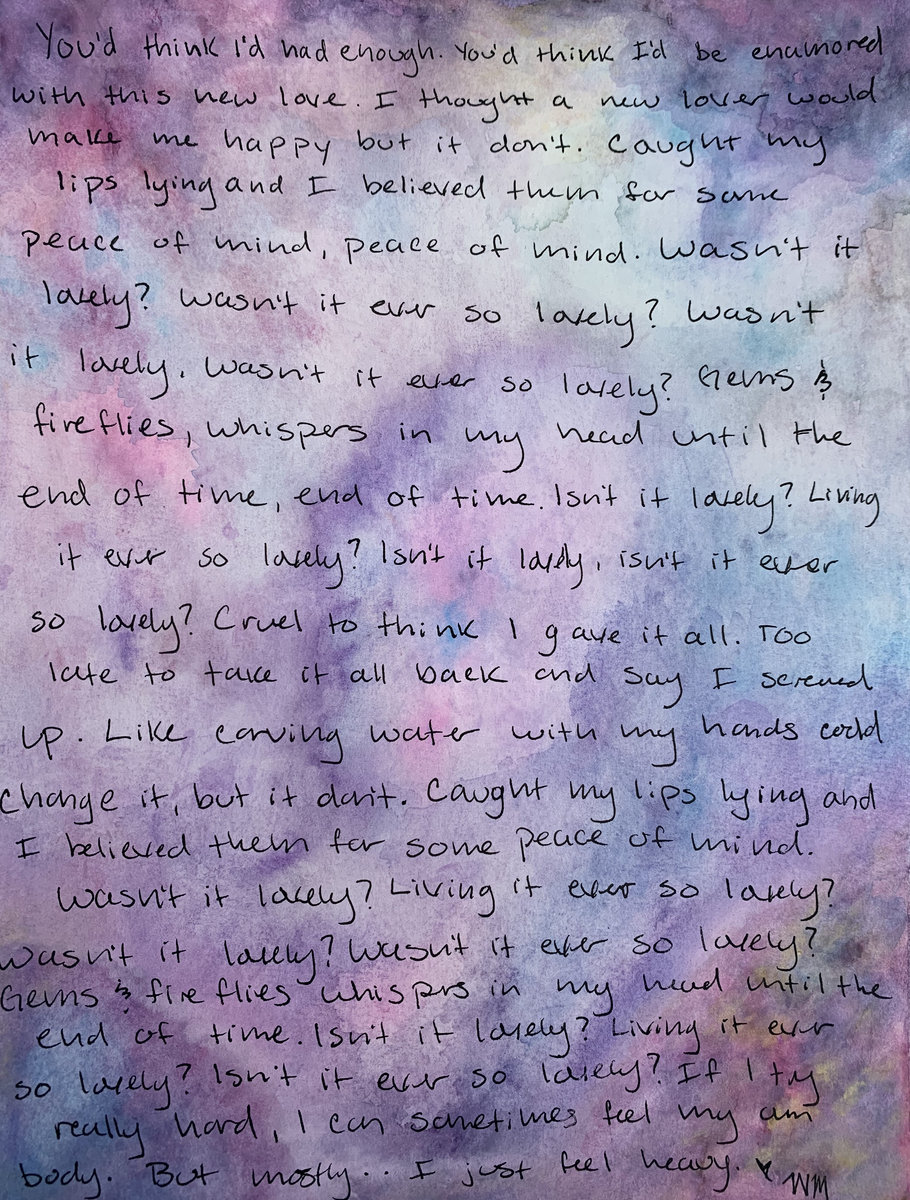 You'd think I'd had enough. You'd think I'd be enamored
with this new love. I thought a new lover would
make me happy but it don't. Caught my
lips lying and I believed them for some
peace of mind, peace of mind. Wasn't it
lovely? Wasn't it ever so lovely? Wasn't
it lovely, wasn't it ever so lovely? Gems &
fireflies, whispers in my head until the
end of time, end of time. Isn't it lovely? Living
it ever so lovely? Isn't it lovely, isn't it ever
so lovely? Cruel to think I gave it all. Too
late to take it all back and say I screwed
up. Like carving water with my hands could
change it, but it don't. Caught my lips lying and
I believed them for some peace of mind.
Wasn't it lovely? Living it ever so lovely?
Wasn't it lovely? Wasn't it ever so lovely?
Gems & fireflies whispers in my head until the
end of time. Isn't it lovely? Living it ever
so lovely? Isn't it ever so lovely? If I try
really hard, I can sometimes feel my own
body. But mostly.. I just feel heavy. ♥ WM